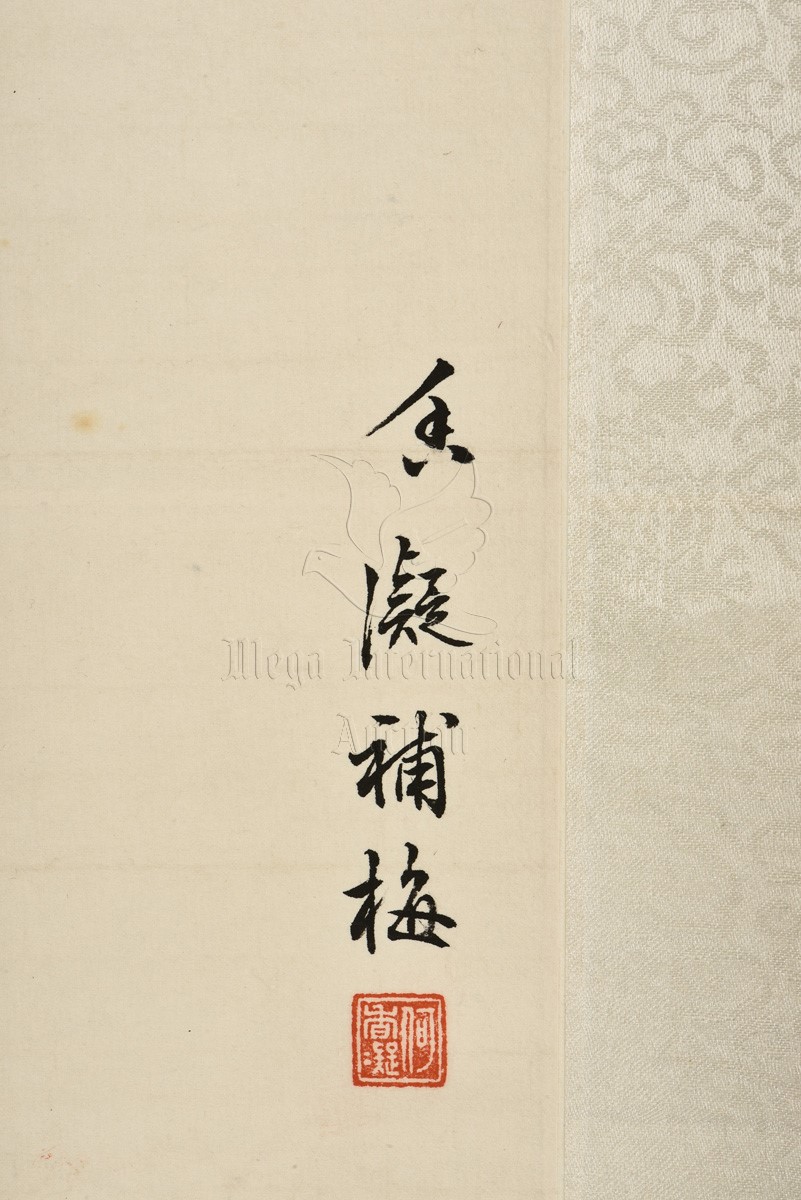 香凝補梅
何香凝
Mega International
Auction